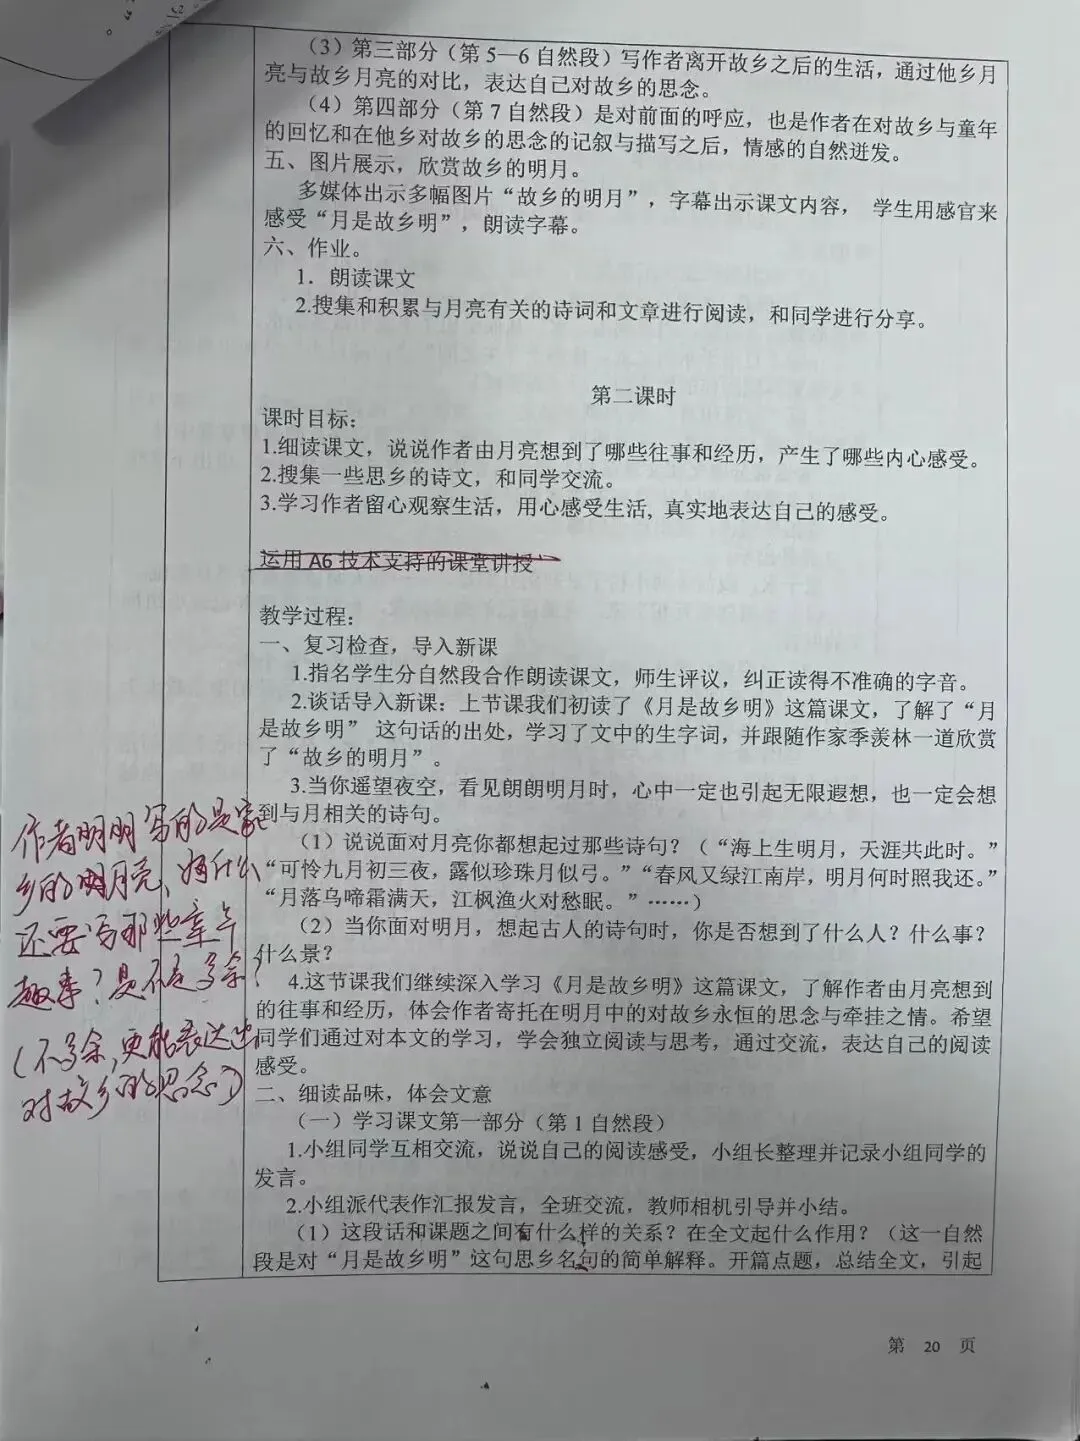 （3）第三部分（第5—6自然段）写作者离开故乡之后的生活，通过他乡月
亮与故乡月亮的对比，表达自己对故乡的思念。
（4）第四部分（第7自然段）是对前面的呼应，也是作者在对故乡与童年
的回忆和在他乡对故乡的思念的记叙与描写之后，情感的自然迸发。
五、图片展示，欣赏故乡的明月。
多媒体出示多幅图片“故乡的明月”，字幕出示课文内容， 学生用感官来
感受“月是故乡明”，朗读字幕。
六、作业。
1. 朗读课文
2.搜集和积累与月亮有关的诗词和文章进行阅读，和同学进行分享。
第二课时
课时目标：
1.细读课文，说说作者由月亮想到了哪些往事和经历，产生了哪些内心感受。
2.搜集一些思乡的诗文，和同学交流。
3.学习作者留心观察生活，用心感受生活, 真实地表达自己的感受。
运用A6技术支持的课堂讲授
教学过程：
一、复习检查，导入新课
1.指名学生分自然段合作朗读课文，师生评议，纠正读得不准确的字音。
2.谈话导入新课：上节课我们初读了《月是故乡明》这篇课文，了解了“月
是故乡明” 这句话的出处，学习了文中的生字词，并跟随作家季羡林一道欣赏
了“故乡的明月”。
3.当你遥望夜空，看见朗朗明月时，心中一定也引起无限遐想，也一定会想
到与月相关的诗句。
（1）说说面对月亮你都想起过那些诗句？（“海上生明月，天涯共此时。”
“可怜九月初三夜，露似珍珠月似弓。”“春风又绿江南岸，明月何时照我还。”
“月落乌啼霜满天，江枫渔火对愁眠。”……）
（2）当你面对明月，想起古人的诗句时，你是否想到了什么人？什么事？
什么景？
4.这节课我们继续深入学习《月是故乡明》这篇课文，了解作者由月亮想到
的往事和经历，体会作者寄托在明月中的对故乡永恒的思念与牵挂之情。希望
同学们通过对本文的学习，学会独立阅读与思考，通过交流，表达自己的阅读
感受。
二、细读品味，体会文意
（一）学习课文第一部分（第1自然段）
1.小组同学互相交流，说说自己的阅读感受，小组长整理并记录小组同学的
发言。
2.小组派代表作汇报发言，全班交流，教师相机引导并小结。
（1）这段话和课题之间有什么样的关系？在全文起什么作用？（这一自然
段是对“月是故乡明”这句思乡名句的简单解释。开篇点题，总结全文，引起
作者明明写的是家
乡的明月亮、为什么
还要写那些童年
趣事？是不是多余？
（不多余，更能表达出
对故乡的思念）
第 20 页